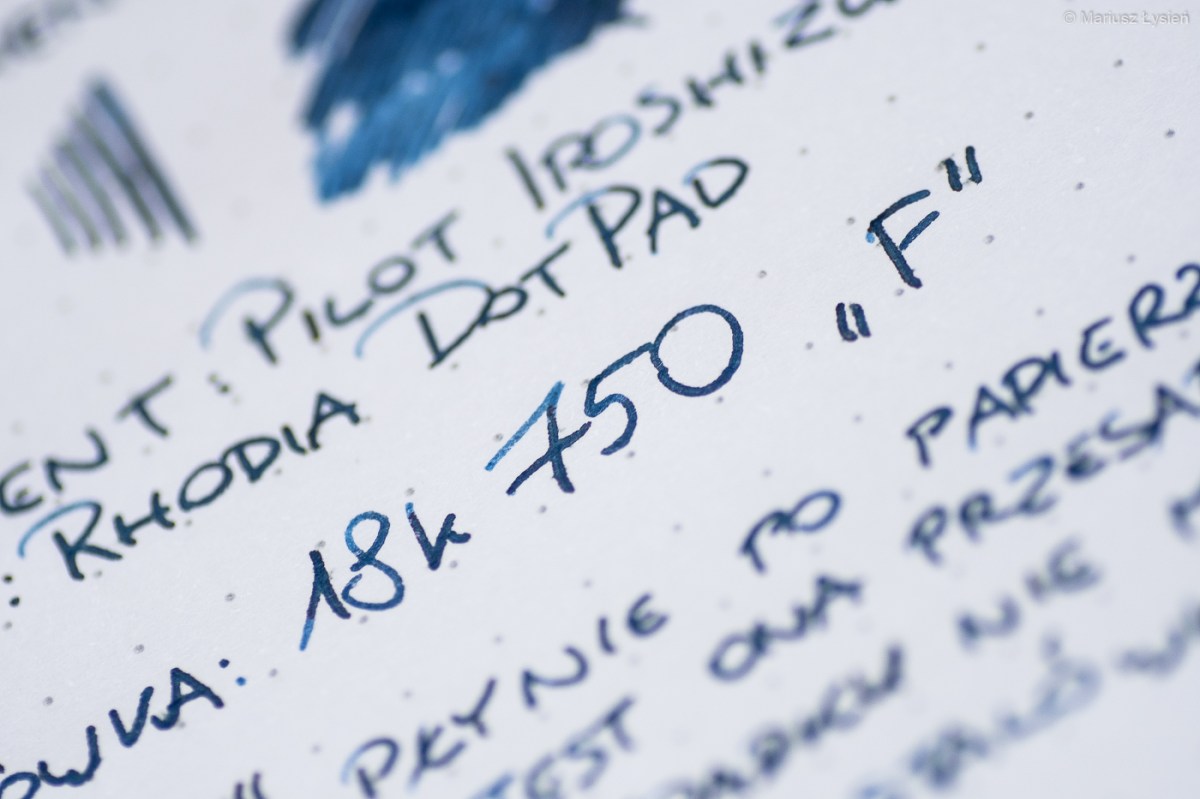 © Mariusz Łysień
ENT: PILOT IROSHIZU
: RHODIA DOTPAD
ÓWKA: 18k 750 „F"
PŁYNIE PO PAPIERZ
EST ONA PRZESA
NIE